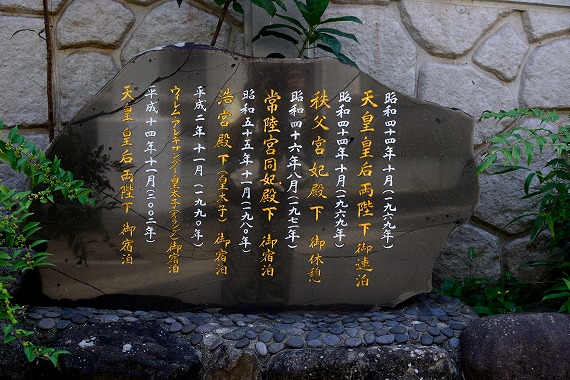 昭和四十四年十月（一九六九年）
天皇皇后両陛下御連泊
昭和四十四年十月（一九六九年）
秩父宮妃殿下　御休憩
昭和四十六年八月（一九七一年）
常陸宮同妃殿下　御宿泊
昭和五十五年十一月（一九八〇年）
浩宮殿下（今の皇太子）　御宿泊
平成二年十一月（一九九〇年）
ウィレム・アレキサンダー皇太子（オランダ）御宿泊
平成十四年十一月（二〇〇二年）
天皇皇后両陛下　御宿泊